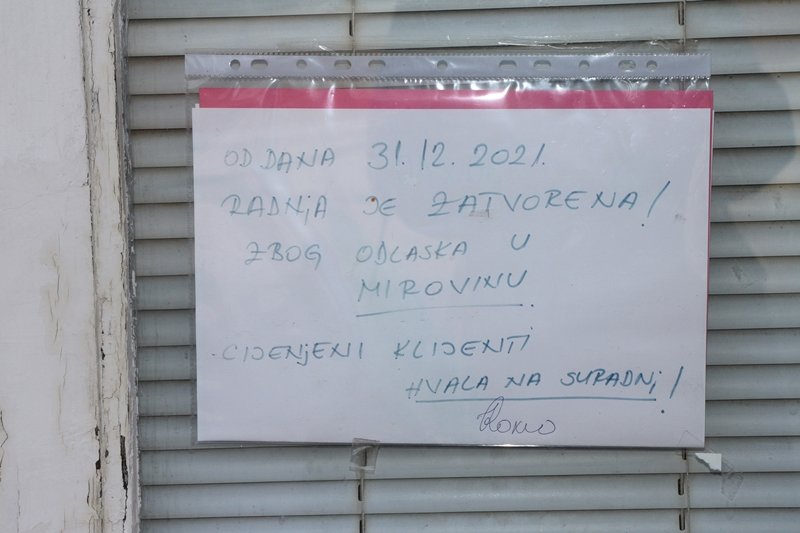 OD DANA 31.12.2021.
RADNjA JE ZATVORENA!
ZBOG ODLASKA U
MIROVINU.
CIJENjENI KLIJENTI
HVALA NA SURADNj!